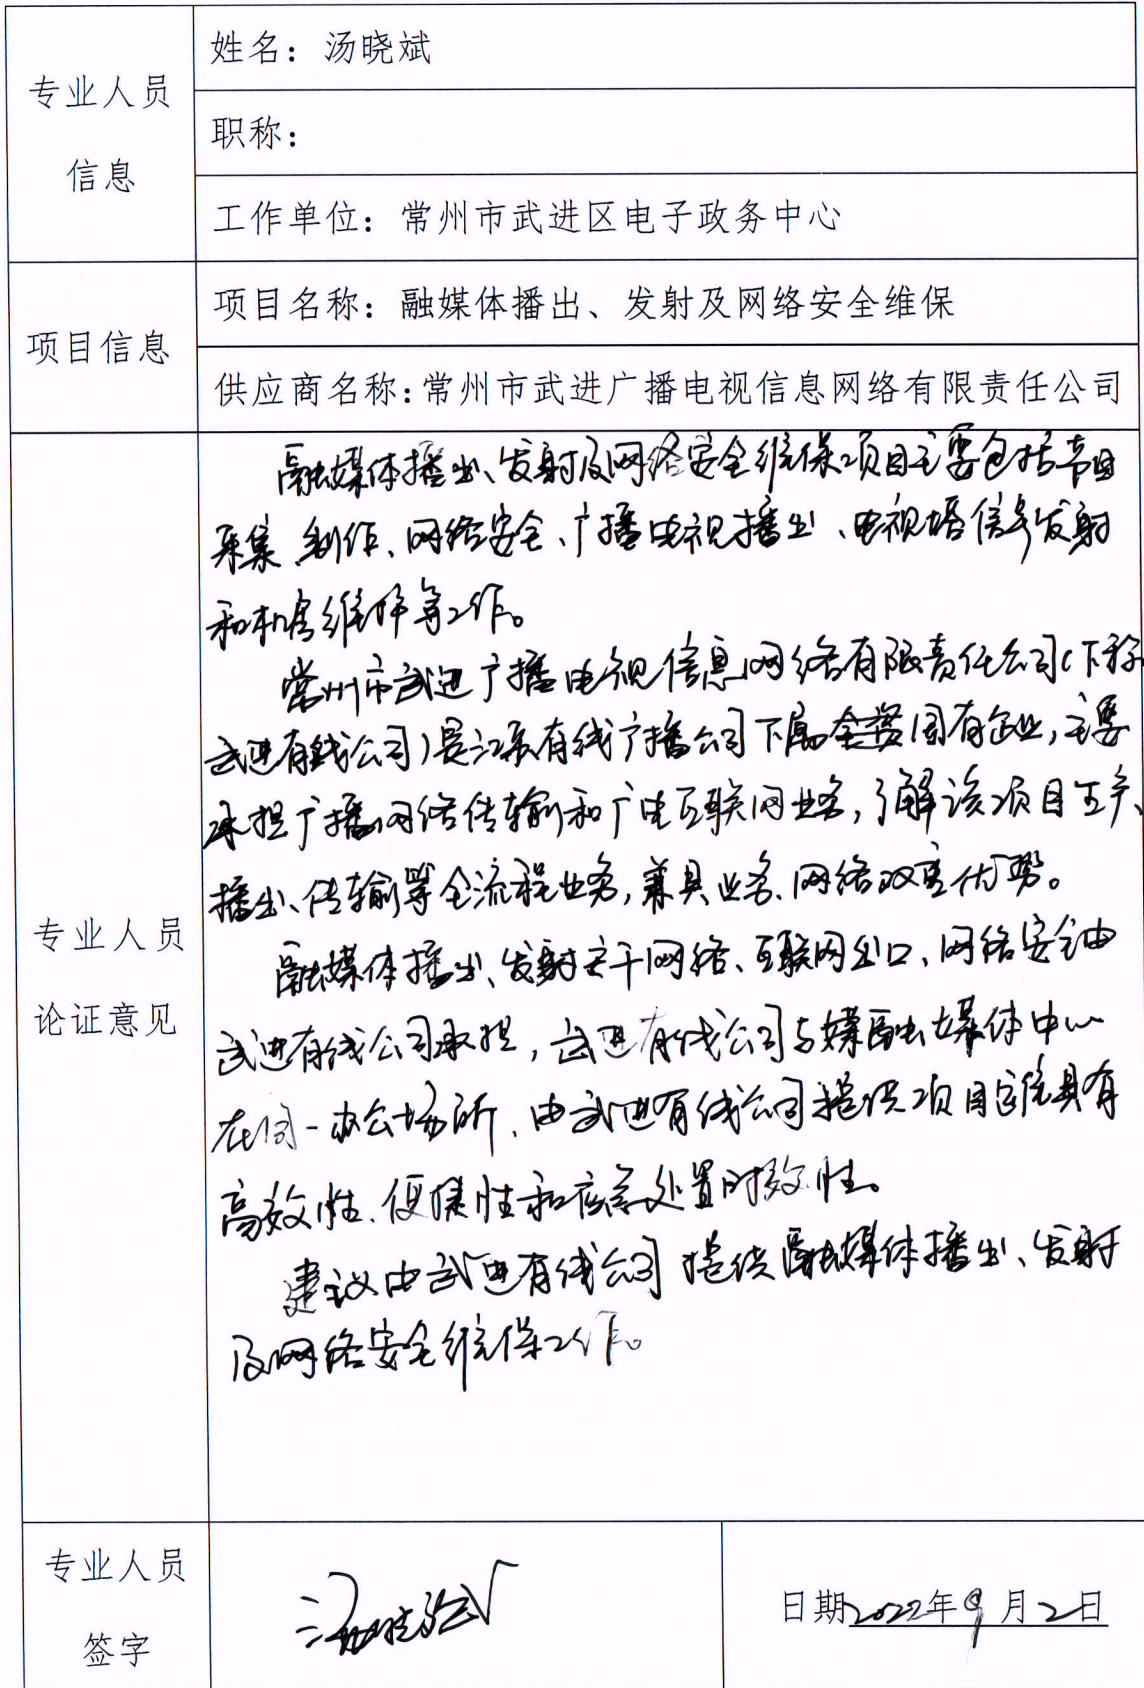 专业人员
信息
姓名：汤晓斌
职称：
工作单位：常州市武进区电子政务中心
项目信息
项目名称：融媒体播出、发射及网络安全维保
供应商名称：常州市武进广播电视信息网络有限责任公司
专业人员
论证意见
融媒体播出、发射及网络安全维保项目主要包括节目
采集、制作、网络安全、广播电视播出、电视塔信号发射
和机房维护等工作。
常州市武进广播电视信息网络有限责任公司（下称
武进有线公司）是江苏有线广播公司下属全资国有企业，主要
承担广播网络传输和广电互联网业务，了解该项目生产、
播出、传输等全流程业务，兼具业务、网络双重优势。
融媒体播出、发射主干网络、互联网出口、网络安全由
武进有线公司承担，武进有线公司与媒融媒体中心
在同一办公场所，由武进有线公司提供项目运维具有
高效性、便捷性和应急处置时效性。
建议由武进有线公司提供融媒体播出、发射
及网络安全维保工作。
专业人员
签字
汤晓斌
日期2022年9月2日